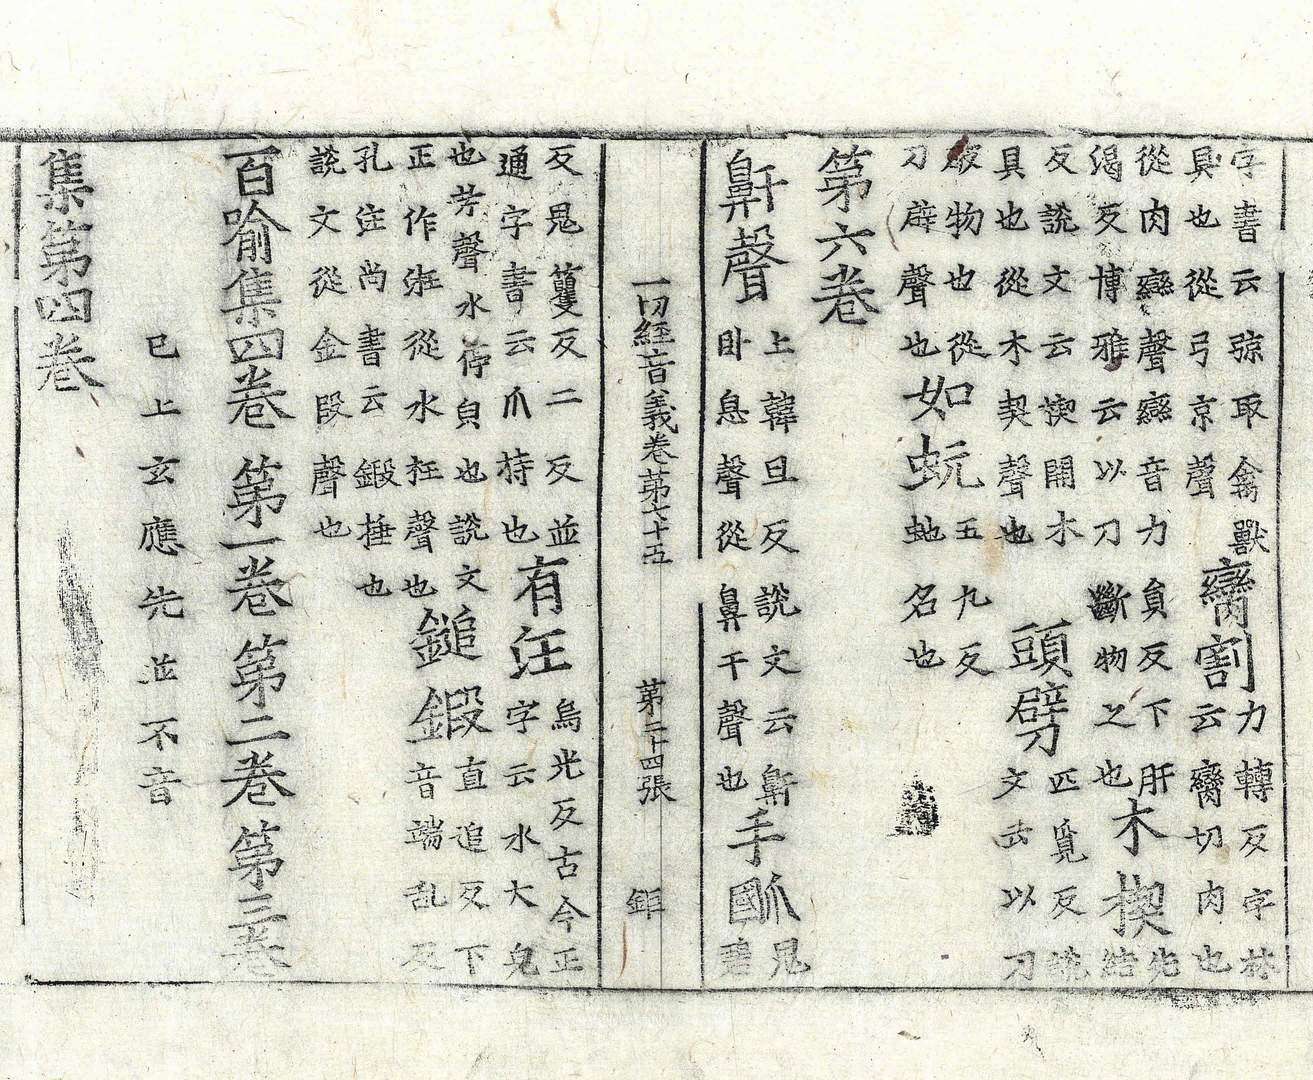 字書云弶取禽獸
具也從弓京聲
臠割
力轉反字林
云臠切肉也
從肉䜌聲䜌音力負反下肝
渴反博雅云以刀斷物之也
木楔
先
結
反說文云楔開木
具也從木契聲也
頭劈
匹覓反說
文云以刀
物也從
刀辟聲也
如蚖
五丸反
虵名也
第六卷
鼾聲
上韓旦反說文云鼾
臥息聲從鼻干聲也
手爴
晃
碧
一切經音義卷第七十五 第二十四張 鉅
反晃籰反二反並
通字書云爪持也
有汪
烏光反古今正
字云水大皃
也芳聲水停負也說文
正作從水聲也
鎚鍜
直追反下
音端乱反
孔注尚書云鍜捶也
說文從金段聲也
百喻集四卷 第一卷 第二卷 第三卷
已上玄應先並不音
集第四卷